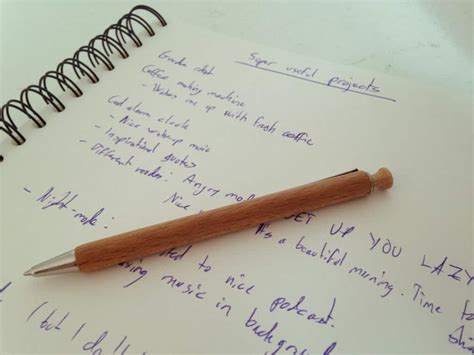 Super useful projects
Coffee making machine
- Wakes me up with fresh coffee
Cool alarm clock
- Nicer wakeup music
- Inspirational quotes
- Different modes: Angry mod
GET UP YOU LAZY
Nice
It's a beautiful morning. Time to
- Night-mode:
to nice podcast.
music in backgro
(but I don't